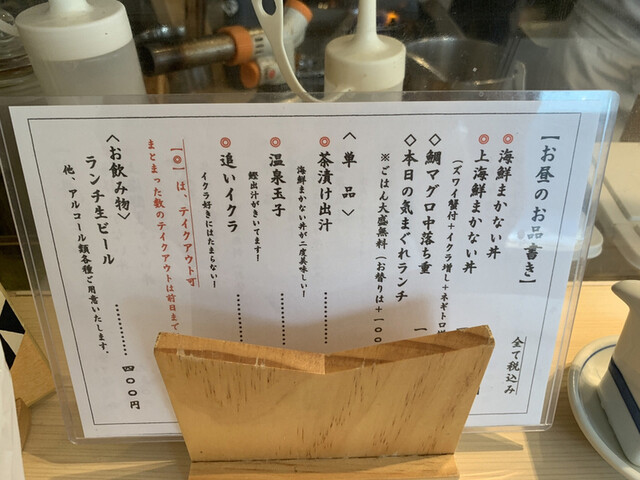 【お昼のお品書き】
全て税込み
◎海鮮まかない丼
◎上海鮮まかない丼
(ズワイ蟹付+イクラ増し+ネギトロ
◇鯛マグロ中落ち重
◇本日の気まぐれランチ
※ごはん大盛無料(お替りは+一〇
〈単品〉
◎茶漬け出汁…………
海鮮まかない丼が二度美味しい!
◎温泉玉子…………
鰹出汁がきいてます!
◎追いイクラ…………
イクラ好きにはたまらない!
【◎】は、テイクアウト可
まとまった数のテイクアウトは前日まで
〈お飲み物〉
ランチ生ビール…………四〇〇円
他、アルコール類各種ご用意いたします。